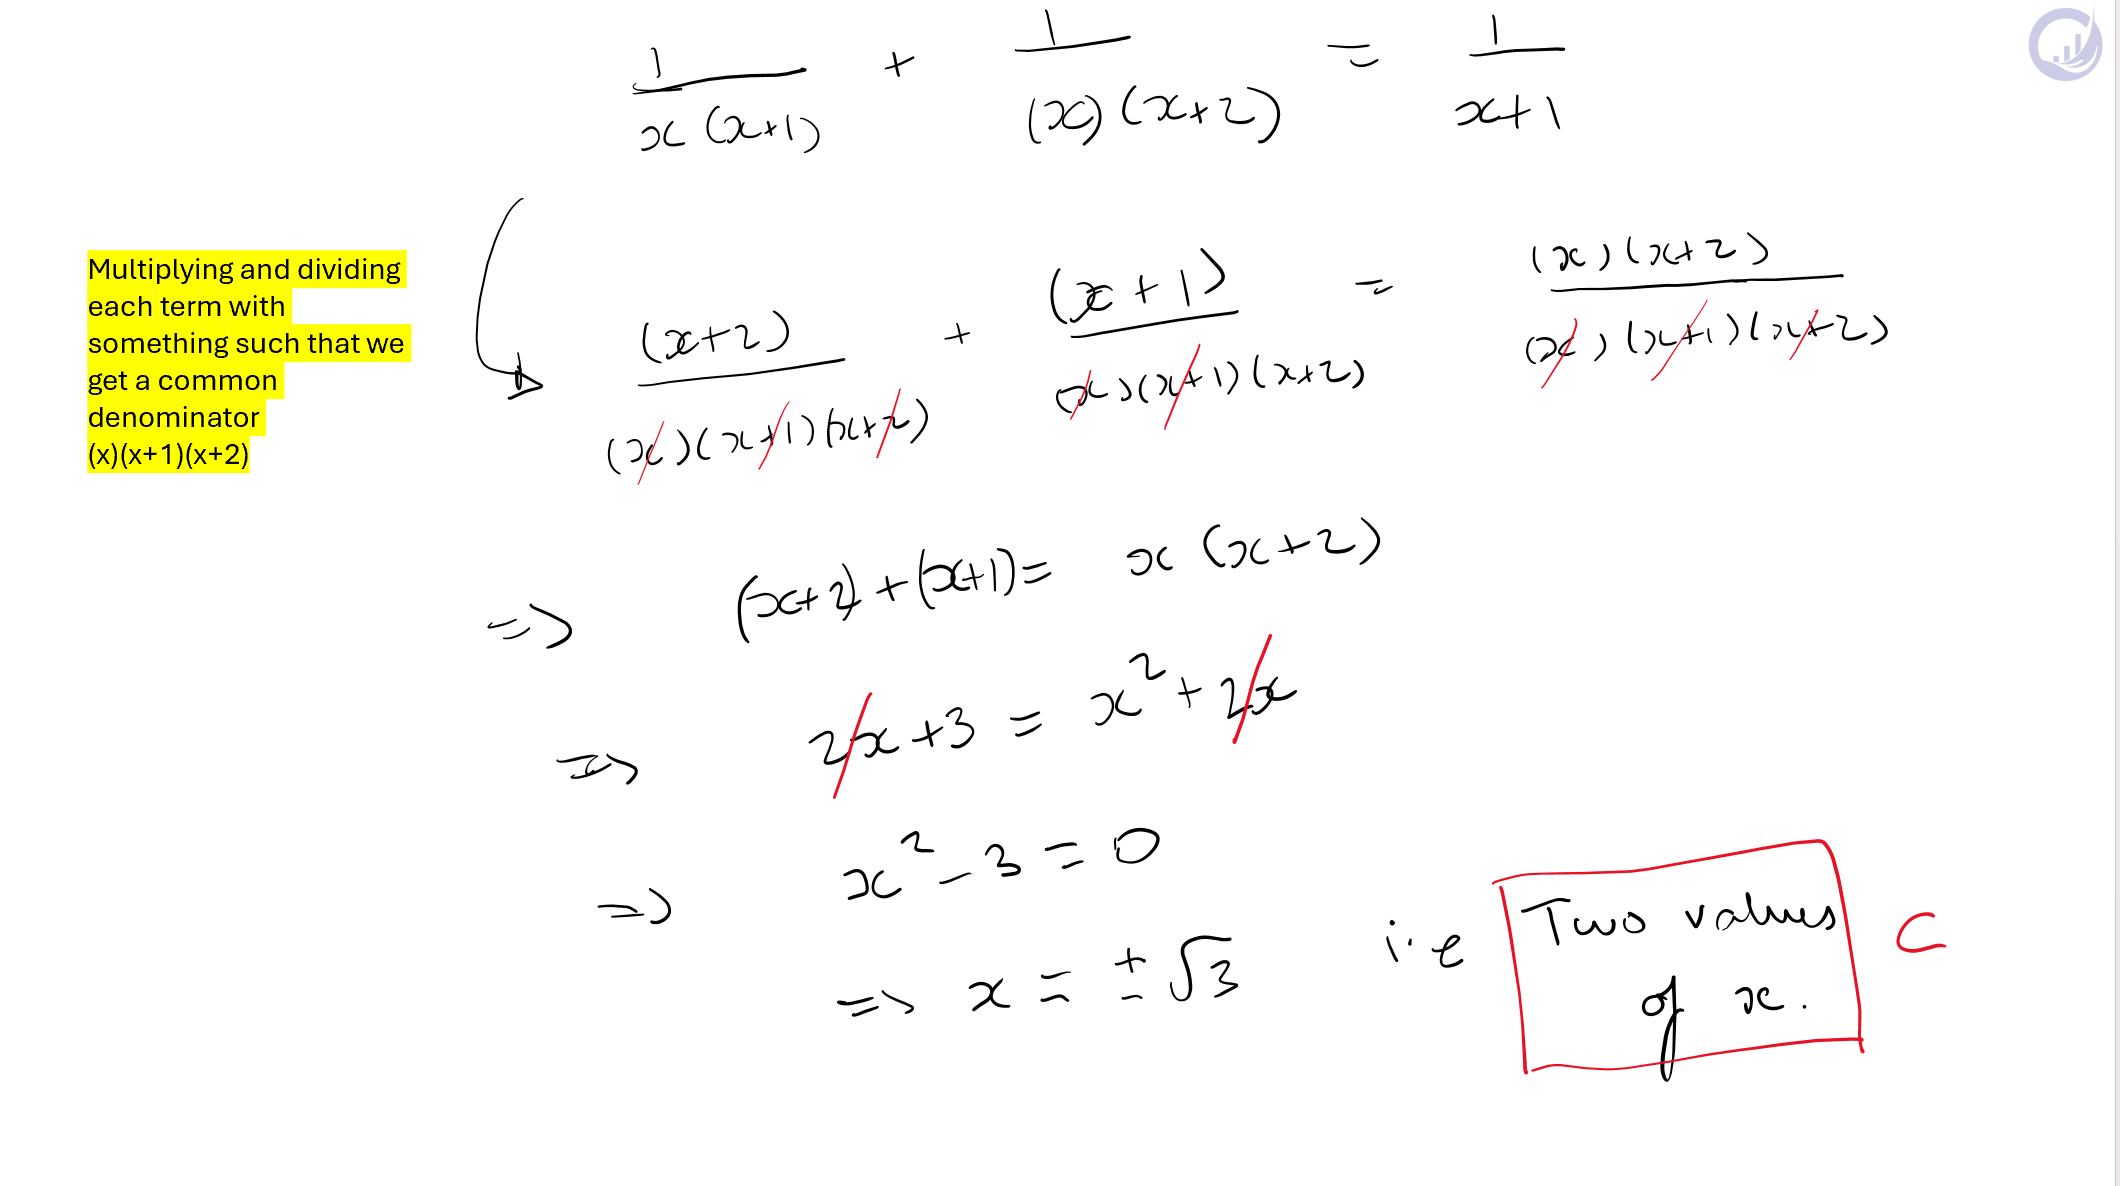 1/(x(x+1)) + 1/((x)(x+2)) = 1/(x+1)
Multiplying and dividing
each term with
something such that we
get a common
denominator
(x)(x+1)(x+2)
(x+2)/((x)(x+1)(x+2)) + (x+1)/((x)(x+1)(x+2)) = (x)(x+2)/((x)(x+1)(x+2))
=> (x+2)+(x+1)= x(x+2)
=> 2x+3 = x²+2x
=> x²-3=0
=> x = ±√3 i.e Two values of x. C